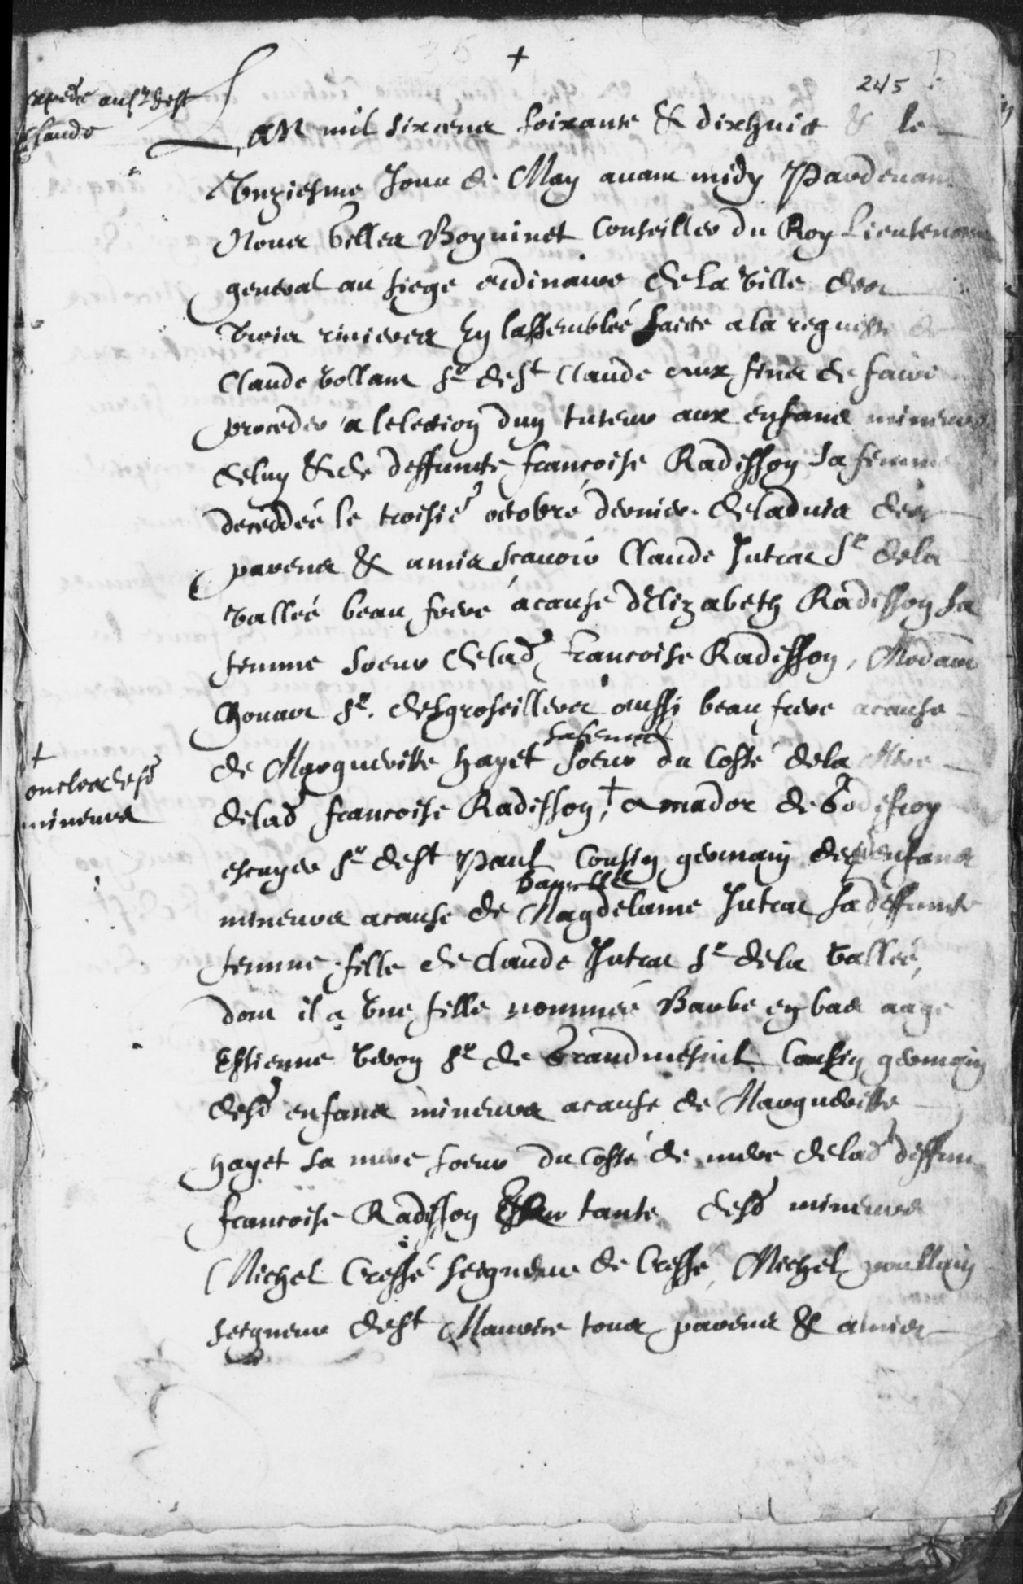 245
expedié au sr de st
Claude
Lan mil six cens soixante & dixhuit & le
Unziesme Jour de May avant midy Pardevant
Nous Gilles Boyvinet Conseiller du Roy Lieutenant
general au siege ordinaire de la Ville des
trois rivieres En lassemblée faite a la requeste de
Claude Vollant sr de st Claude aux fins de faire
proceder a lelection dun tuteur aux enfans mineurs
de luy & de deffunte francoise Radisson sa femme
decedée le troisie octobre dernier de ladvis des
parens & amis scavoir Claude Jutras sr de la
Vallée beau frere a cause dElizabeth Radisson sa
femme soeur de lad francoise Radisson, Medard
Chouart sr. desgroseillers aussi beau frere a cause
de Margueritte hayet sa femme soeur du Costé de la Mere
+
oncles desd
mineurs
de lad francoise Radisson, + amador de Godefroy
escuyer sr de st Paul Cousin germain des enfans
mineurs a cause de Damlle Magdelaine Jutras sa deffunte
femme fille de Claude Jutras sr de la Vallée,
dont il a Une fille nommée Barbe en bas aage
Estienne Veron sr de Grandmesnil Cousin germain
desd enfans mineurs a cause de Margueritte
hayet sa mere soeur du Costé de mere de lad deffun
francoise Radisson tante desd mineurs
Michel Cressé seigneur de Cressé, Michel poullain
seigneur de st Maurice tous parens & amis